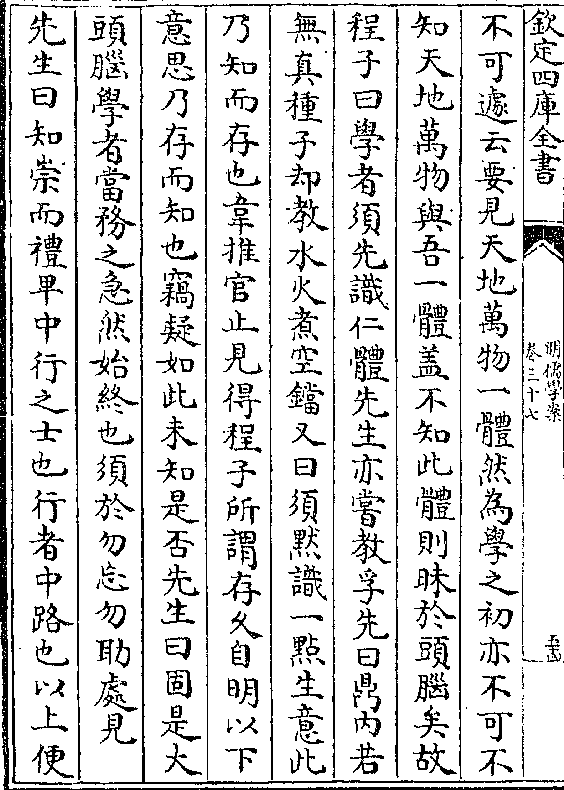 欽定四庫全書
明儒學案
卷三十七
不可遽云要見天地萬物一體然為學之初亦不可不
知天地萬物與吾一體盖不知此體則昧於頭腦矣故
程子曰學者須先識仁體先生亦嘗教孚先曰鼎内若
無真種子却教水火煮空鐺又曰須默識一點生意此
乃知而存也韋推官止見得程子所謂存久自明以下
意思乃存而知也竊疑如此未知是否先生曰固是大
頭腦學者當務之急然始終也須於勿忘勿助處見
先生曰知崇而禮卑中行之士也行者中路也以上便